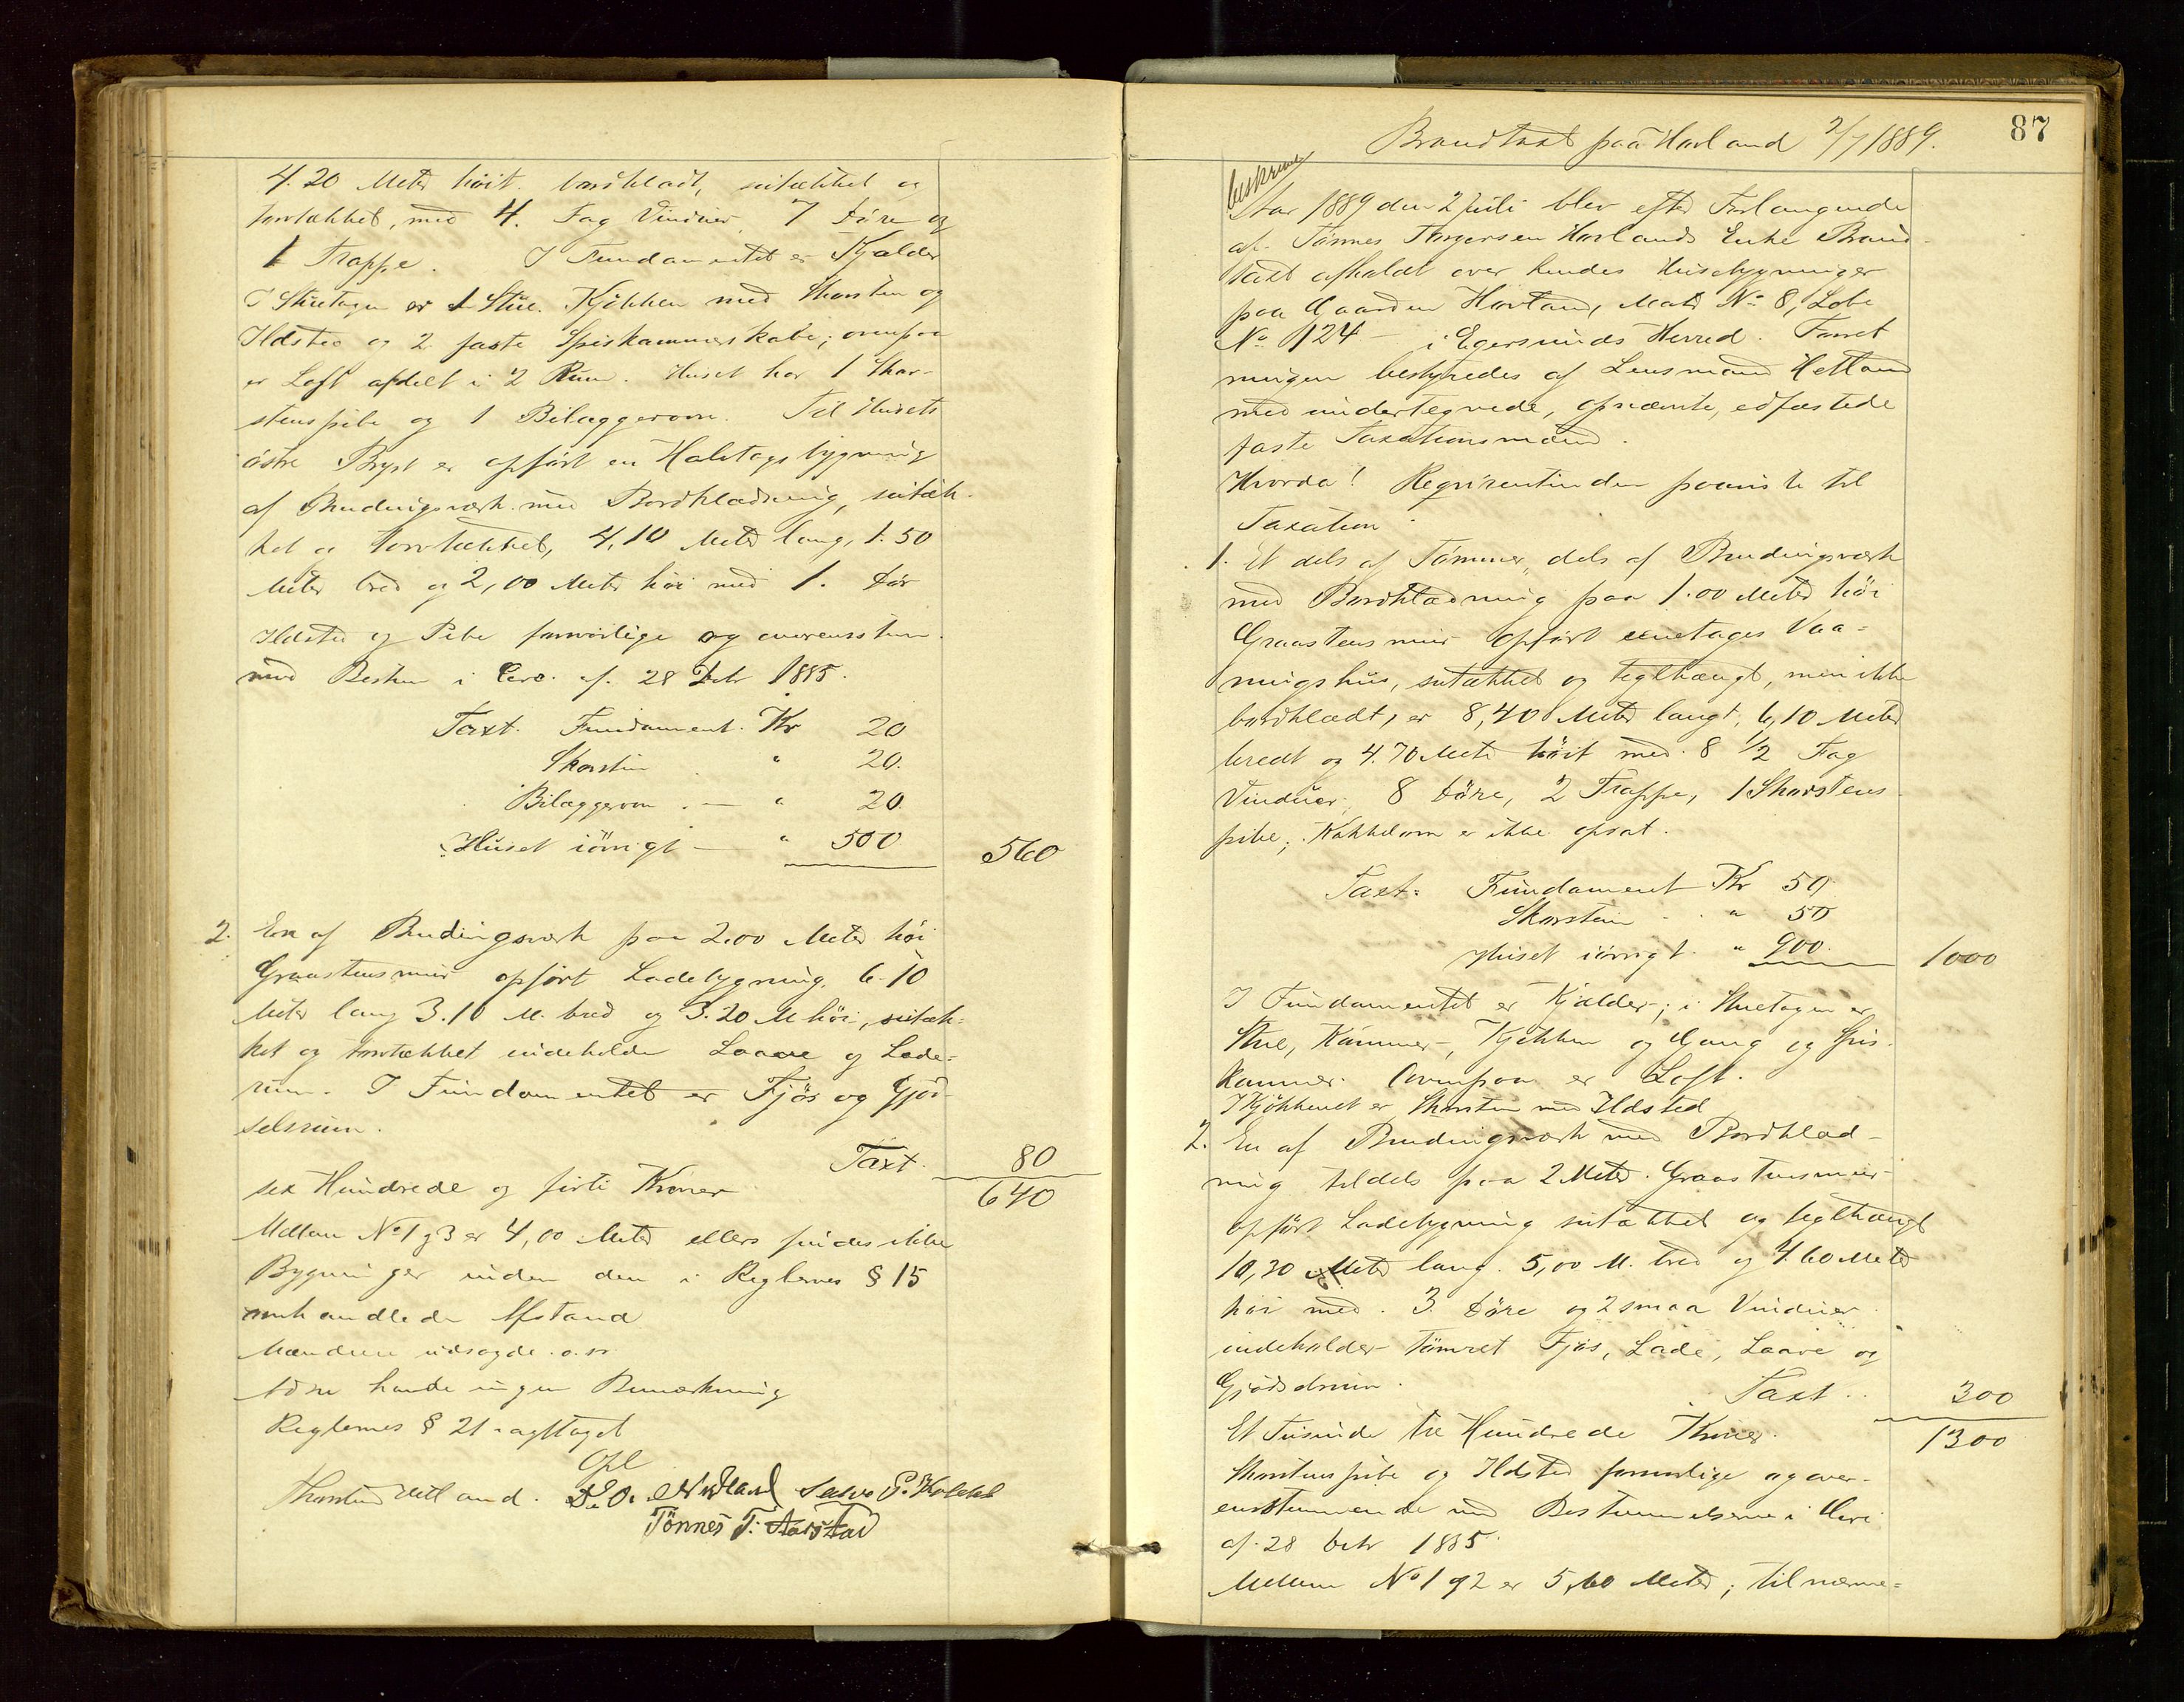 4.20 Meter höit. bordklædt, sutækket og
torvtækket, med 4. Fag Vinduer, 7 Döre og
1 Trappe. I Fundamentet er Kjælder
I Stuetagen er 1 Stue. Kjökken med Skorsten og
Ildsted og 2 faste Spiskammerskabe; ovenpaa
er Loft afdelt i 2 Rum. Huset har 1 Skor-
stenspibe og 1 Bilæggerovn. Til Husets
östre Bryst er opfört en Halvtagsbygning
af Bindingsværk med Bordklædning, sutæk-
ket og torvtækket, 4,10 Meter lang, 1.50
Meter bred og 2,00 Meter höi med 1. Dör
Ildsted og Pibe forsvarlige og overensstem.
med Bestem i Circ. af 28 Debr 1885.
Taxt. Fundament. Kr 20
Skorsten " 20.
Bilæggerovn . — " 20.
Huset iövrigt — " 500 560
2. En af Bindingsværk paa 2.00 Meter höi
Graastensmur opfört Ladebygning, 6.10
Meter lang 3.10 M. bred og 3.20 M höi, sutæk-
ket og torvtækket indeholder Laave og Lade-
rum. I Fundamentet er Fjös og Gjöd-
selsrum.
Taxt. 80
sex Hundrede og firti Kroner 640
Mellem No 1 og 3 er 4,00 Meter ellers findes ikke
Bygninger inden den i Reglernes § 15
omhandlede Afstand
Mændene udsagde o.s.v.
havde ingen Bemærkning
Reglernes § 21 iagttaget
Opl
Thorsten Hetland. D. O. Salve P.
Tönnes T. Aarstad
87
Brandtaxt paa Havland 2/7 1889.
beskreven
Aar 1889 den 2 Juli blev efter Forlangende
af Tönnes Torgersen Havlands Enke Brand-
taxt afholdt over hendes Husebygninger
paa Gaarden Havland, Matr No 8, Löbe
No 124 — i Egersunds Herred. Forret
ningen bestyredes af Lensmand Hetland
med undertegnede, opnævnte, edfæstede
faste Taxationsmænd.
Hvorda! Reqvirentinden paaviste til
Taxation
1. Et dels af Tömmer, dels af Bindingsværk
med Bordklædning paa 1.00 Meter höi
Graastensmur opfört eenetages Vaa-
ningshus, sutækket og teglhængt, men ikke
bordklædt, er 8,40 Meter langt, 6,10 Meter
bredt og 4.70 Meter höit med 8 1/2 Fag
Vinduer, 8 Döre, 2 Trappe, 1 Skorstens-
pibe; Kakkelovn er ikke opsat.
Taxt: Fundament Kr 50
Skorsten " 50
Huset iövrigt " 900. 1000
I Fundamentet er Kjælder; i Stuetagen er
Stue, Kammer, Kjökken og Gang og Spis-
kammer. Ovenpaa er Loft.
I Kjökkenet er Skorsten med Ildsted
2. En af Bindingsværk med Bordklæd-
ning tildels paa 2 Meter Graastensmur
opfört Ladebygning sutækket og teglhængt
10,30 Meter lang. 5,00 M. bred og 4.60 Meter
höi med. 3 Döre og 2 smaa Vinduer
indeholder tömret Fjös, Lade, Laave og
Gjödselrum. Taxt. 300
Et Tusinde tre Hundrede Kroner. 1300
Skorstenspibe og Ildsted forsvarlige og over-
ensstemmende med Bestemmelserne i Circ
af 28 Debr 1885.
Mellem No 1 og 2 er 5,60 Meter; til nærme-